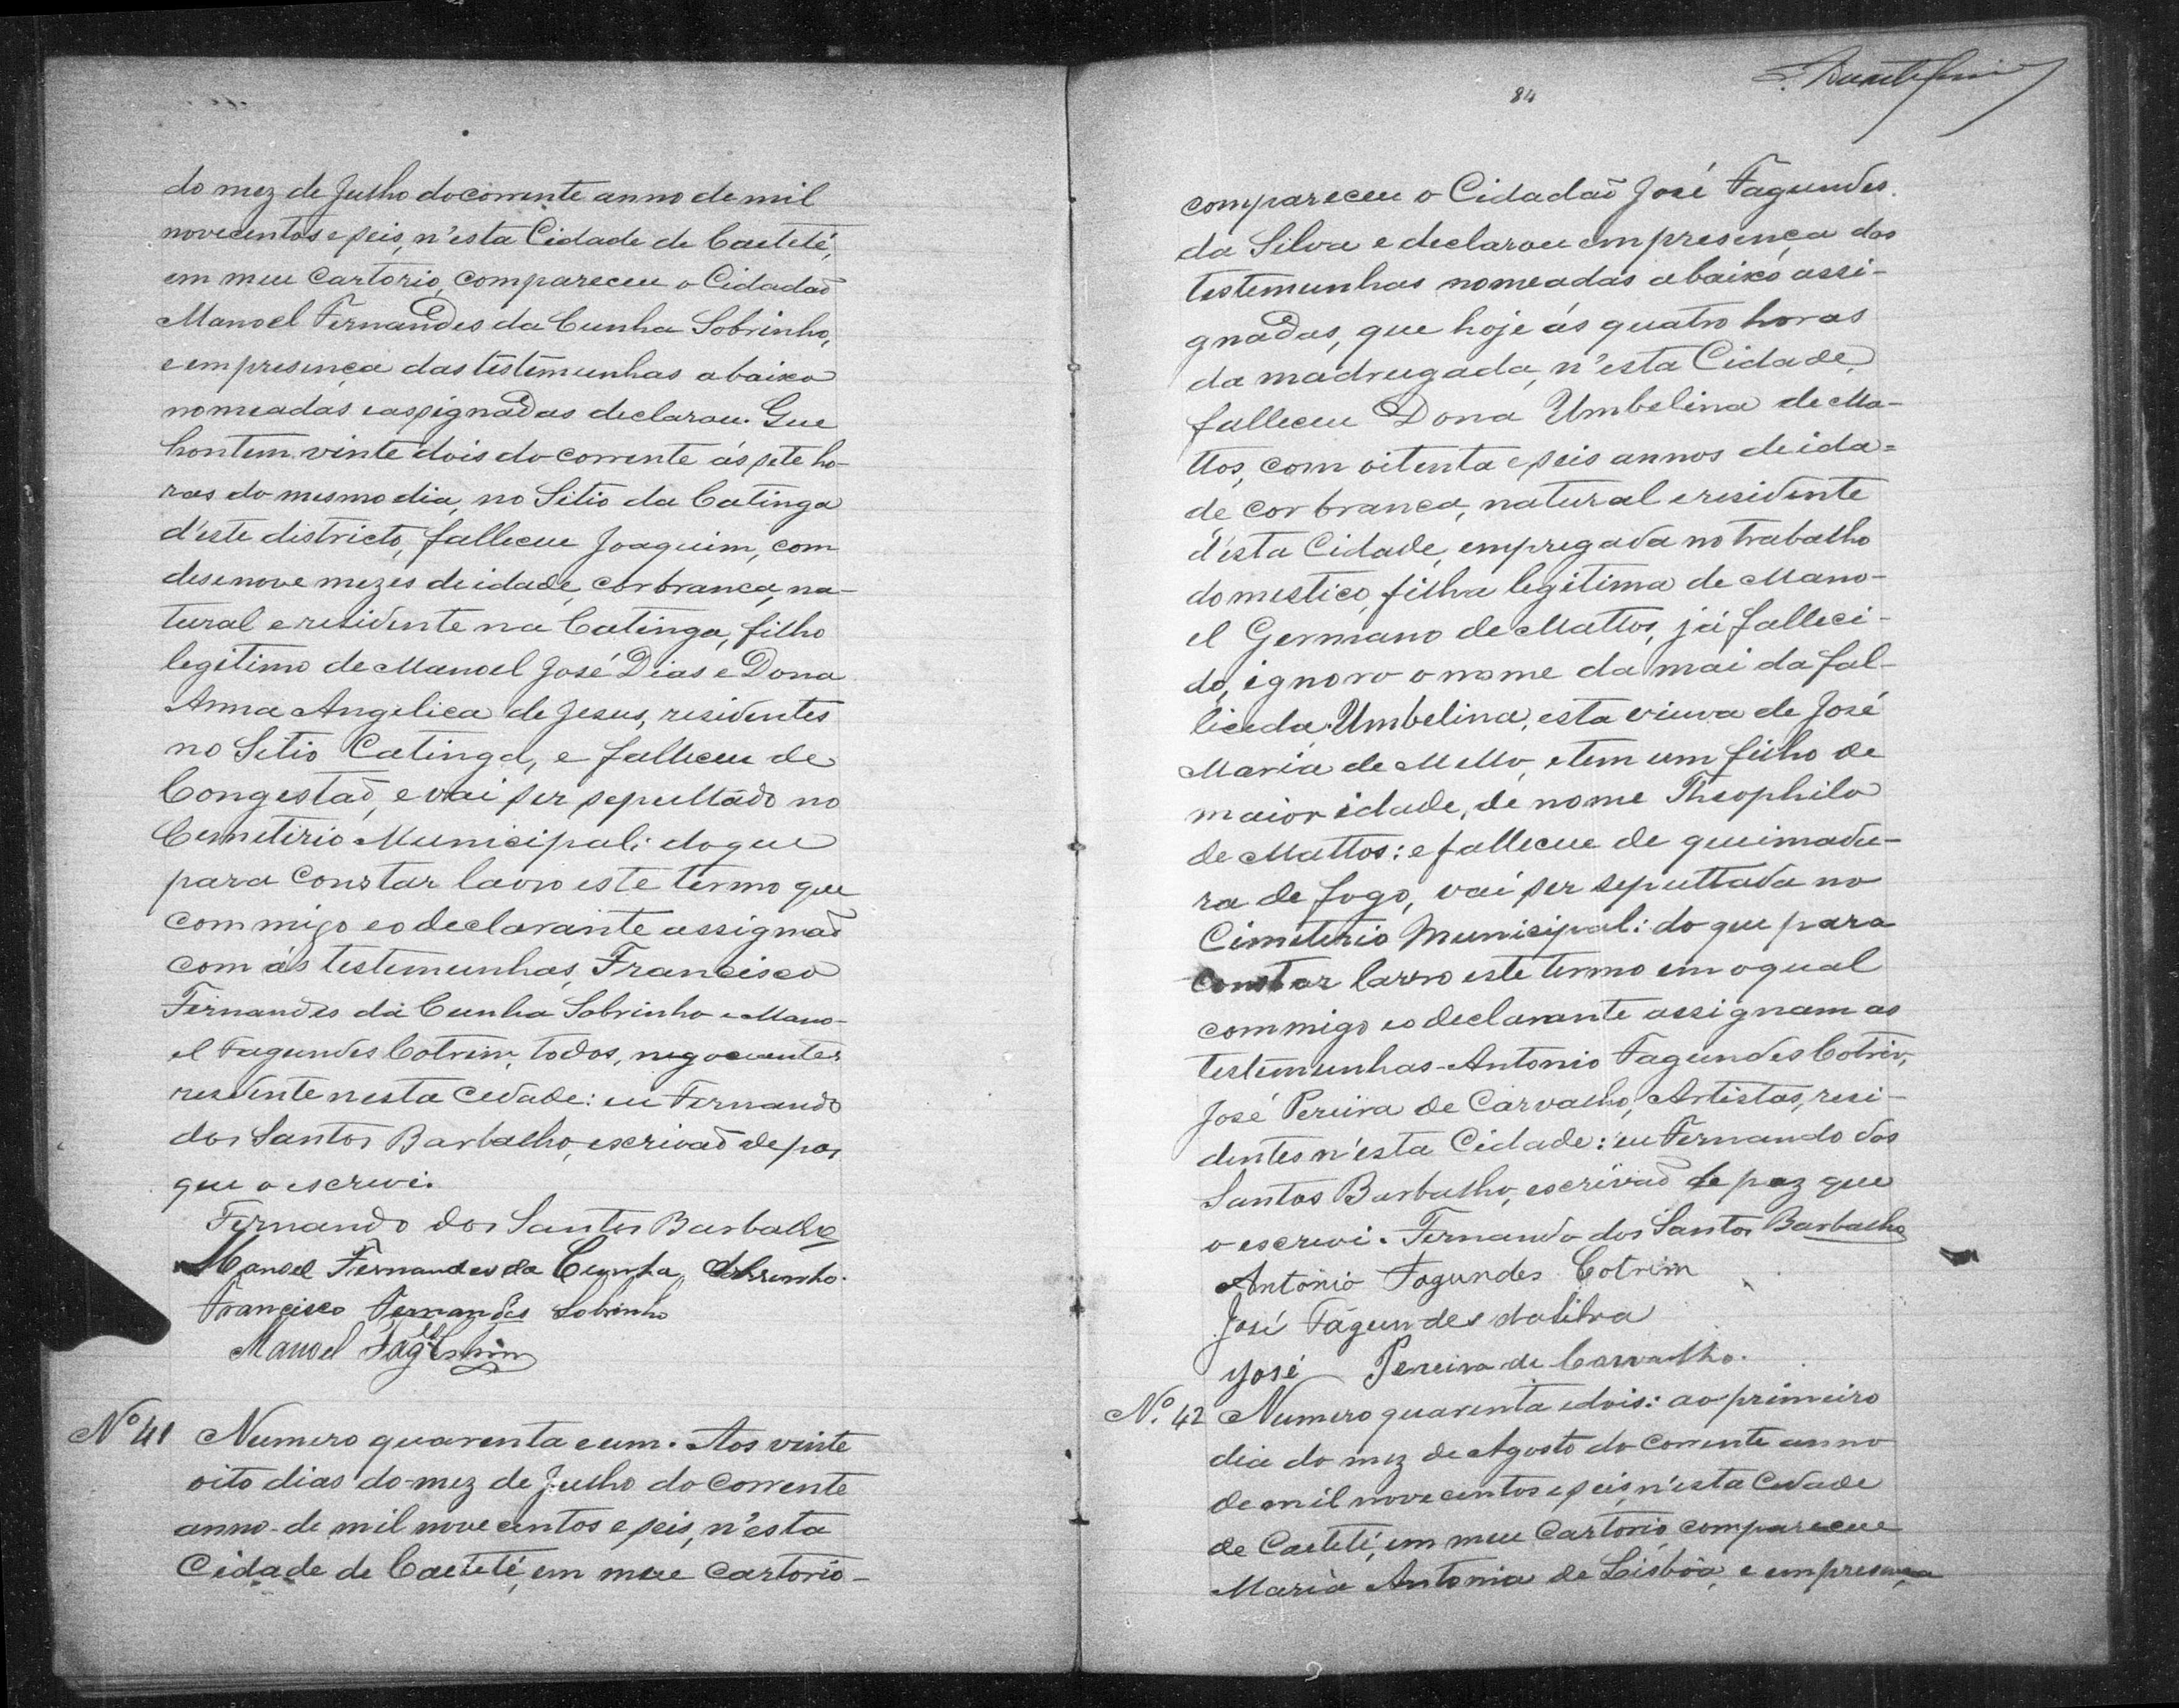 do mez de Julho do corrente anno de mil
novecentos e seis, n'esta Cidade de Caeteté,
em meu Cartorio, compareceu o Cidadaõ
Manoel Fernandes da Cunha Sobrinho,
e em presença das testemunhas abaixo
nomeadas e assignadas declarou. Que
hontem vinte dois do corrente ás sete ho-
ras do mesmo dia, no Sitio da Catinga
d'este districto, falleceu Joaquim, com
desenove mezes de idade, cor branca, na-
tural e residente na Catinga, filho
legitimo de Manoel José Dias e Dona
Anna Angelica de Jesus, residentes
no Sitio Catinga, e falleceu de
Congestaõ, e vai ser sepultado no
Cemeterio Municipal: do que
para Constar lavro este termo que
com migo e o declarante assignaõ
com ás testemunhas, Francisco
Fernandes da Cunha Sobrinho e Mano-
el Fagundes Cotrim, todos, negociantes
residente nesta Cidade: eu Fernando
dos Santos Barbalho, escrivaõ de paz
que o escrevi.
Fernando dos Santos Barbalho
Manoel Fernandes da Cunha Sobrinho.
Francisco Fernandes Sobrinho
Manoel Fag.des Cotrim
Nº 41 Numero quarenta e um. Aos vinte
oito dias do mez de Julho do Corrente
anno de mil novecentos e seis, n'esta
Cidade de Caeteté, em meu Cartorio-
84
compareceu o Cidadaõ José Fagundes
da Silva e declarou em presença das
testemunhas nomeadas abaixo assi-
gnadas, que hoje ás quatro horas
da madrugada, n'esta Cidade,
falleceu Dona Umbelina de Ma-
ttos, com oitenta e seis annos de ida=
de, cor branca, natural e residente
d'esta Cidade, empregada no trabalho
domestico, filha legitima de Mano-
el Germano de Mattos, já falleci-
do, ignoro o nome da mai da fal-
licida Umbelina, esta viuva de José
Maria de Mello, e tem um filho de
maior idade, de nome Theophilo
de Mattos: e falleceu de queimadu-
ra de fogo, vai ser sepultada no
Cimeterio Municipal: do que para
Constar lavro este termo em o qual
commigo e o declarante assignam as
testemunhas-Antonio Fagundes Cotrim,
José Pereira de Carvalho, Artistas, resi-
dentes n'esta Cidade: eu Fernando dos
Santos Barbalho, escrivaõ de paz que
o escrevi. Fernando dos Santos Barbalho
Antonio Fagundes Cotrim
José Fagundes da Silva
José Pereira de Carvalho.
Nº. 42 Numero quarenta e dois: ao primeiro
dia do mez de Agosto do Corrente anno
de mil novecentos e seis, n'esta Cidade
de Caeteté, em meu Cartorio, compareceu
Maria Antonia de Lisbôa, e em presença